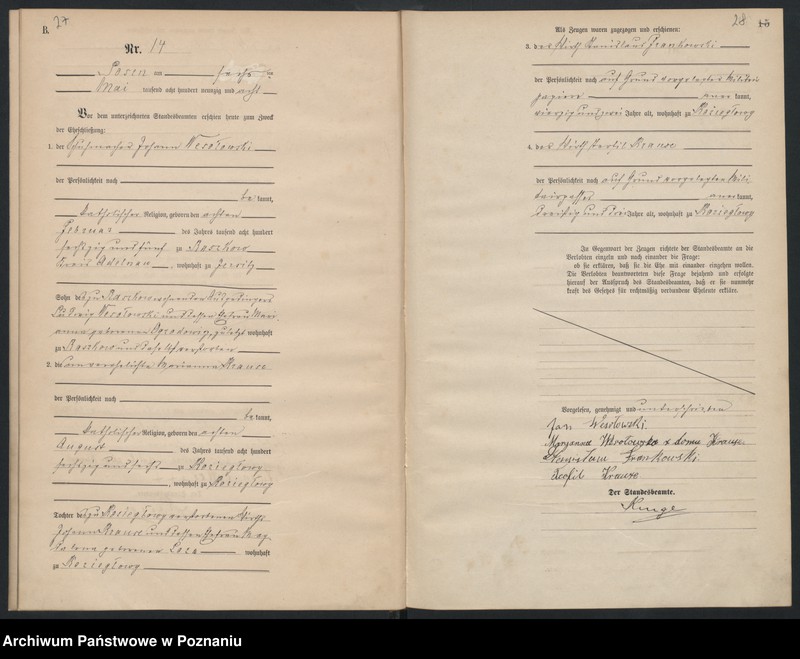 B. 27
Nr. 14
Posen am sechsten
Mai tausend acht hundert neunzig und acht
Vor dem unterzeichneten Standesbeamten erschien heute zum Zweck
der Eheschließung:
1. der Schuhmacher Johann Wesołowski
der Persönlichkeit nach
be kannt,
katholischer Religion, geboren den achten
Februar des Jahres tausend acht hundert
sechzig und fünf zu Raschkow
Kreis Adelnau, wohnhaft zu Jersitz
Sohn des zu Raschkow wohnenden
Ludwig Wesołowski und dessen Ehefrau Mari
anna geborenen zuletzt wohnhaft
zu Raschkow und daselbst verstorben
2. die unverehelichte Marianna Krause
der Persönlichkeit nach
be kannt,
katholischer Religion, geboren den achten
August des Jahres tausend acht hundert
sechzig und sechs zu Kozieglowy
, wohnhaft zu Kozieglowy
Tochter des zu Kozieglowy verstorbenen Wirths
Johann Krause und dessen Ehefrau Mag
dalena geborener wohnhaft
zu Kozieglowy
28 15
Als Zeugen waren zugezogen und erschienen:
3. der Wirth Stanislaus Frankowski
der Persönlichkeit nach auf Grund vorgelegter Militair
papiere aner kannt,
vierzig und zwei Jahre alt, wohnhaft zu Kozieglowy
4. der Wirth Teofil Krause
der Persönlichkeit nach auf Grund vorgelegten Mili
tairpasses aner kannt,
dreißig und drei Jahre alt, wohnhaft zu Kozieglowy
In Gegenwart der Zeugen richtete der Standesbeamte an die
Verlobten einzeln und nach einander die Frage:
ob sie erklären, daß sie die Ehe mit einander eingehen wollen.
Die Verlobten beantworteten diese Frage bejahend und erfolgte
hierauf der Ausspruch des Standesbeamten, daß er sie nunmehr
kraft des Gesetzes für rechtmäßig verbundene Eheleute erkläre.
Vorgelesen, genehmigt und unterschrieben
Jan Wesołowski.
Maryanna z domu Krauze
Stanisław Frankowski
Teofil Krauze
Der Standesbeamte.
Kruge
Archiwum Państwowe w Poznaniu